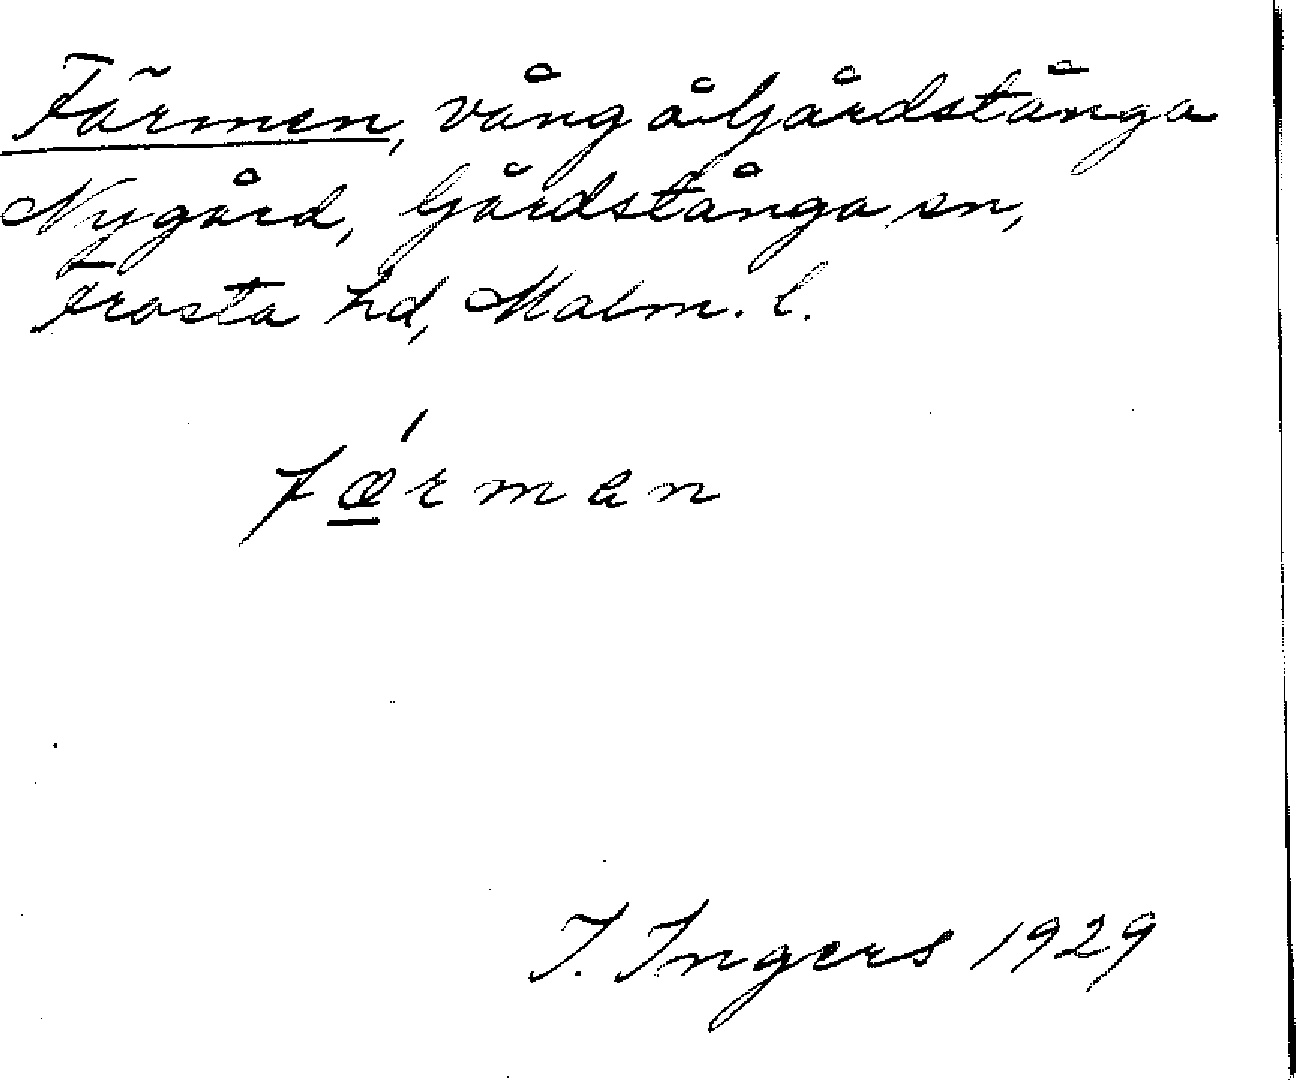 Färmen, vång å Gårdstånga
Nygård, Gårdstånga sn,
Frosta hd, Malm. l.
fǽrmen
I. Ingers 1929